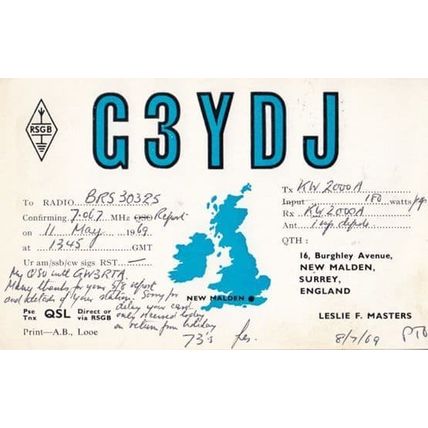 G3YDJ
RSGB
To RADIO BRS 30325
Confirming 7.067 MHz QSO Report
on 11 May 1969
at 1345 GMT
Ur am/ssb/cw sigs RST —
My QSO with GW3RTA.
Many thanks for your S/S report
and details of your station. Sorry for
delay your card
only received today
on return from holiday
73's Les.
Pse Tnx QSL Direct or via RSGB
Print—A.B., Looe
NEW MALDEN
Tx KW 2000A
Input 180 watts pep
Rx KW 2000A
Ant dipole
QTH :
16, Burghley Avenue,
NEW MALDEN,
SURREY,
ENGLAND
LESLIE F. MASTERS
8/7/69 PTO